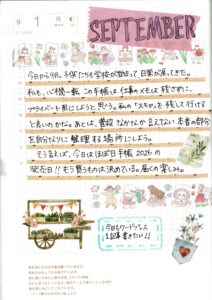 9
1
月
SEPTEMBER
今日から9月。子供たちも学校が始まって、日常が戻ってきた。
私も、心機一転、この手帳は仕事のメモは残さずに、
プライベート用にしようと思う。私の「スキ♡」を残して行ける
と良いのかな。あとは、普段なかなか言えない本音の部分
を自分なりに整理する場所にしよう。
そう言えば、今日はほぼ日手帳2026の
発売日!! もう買うものは決めている。届くの楽しみ。
今日もワードプレス
1記事書きたい!!